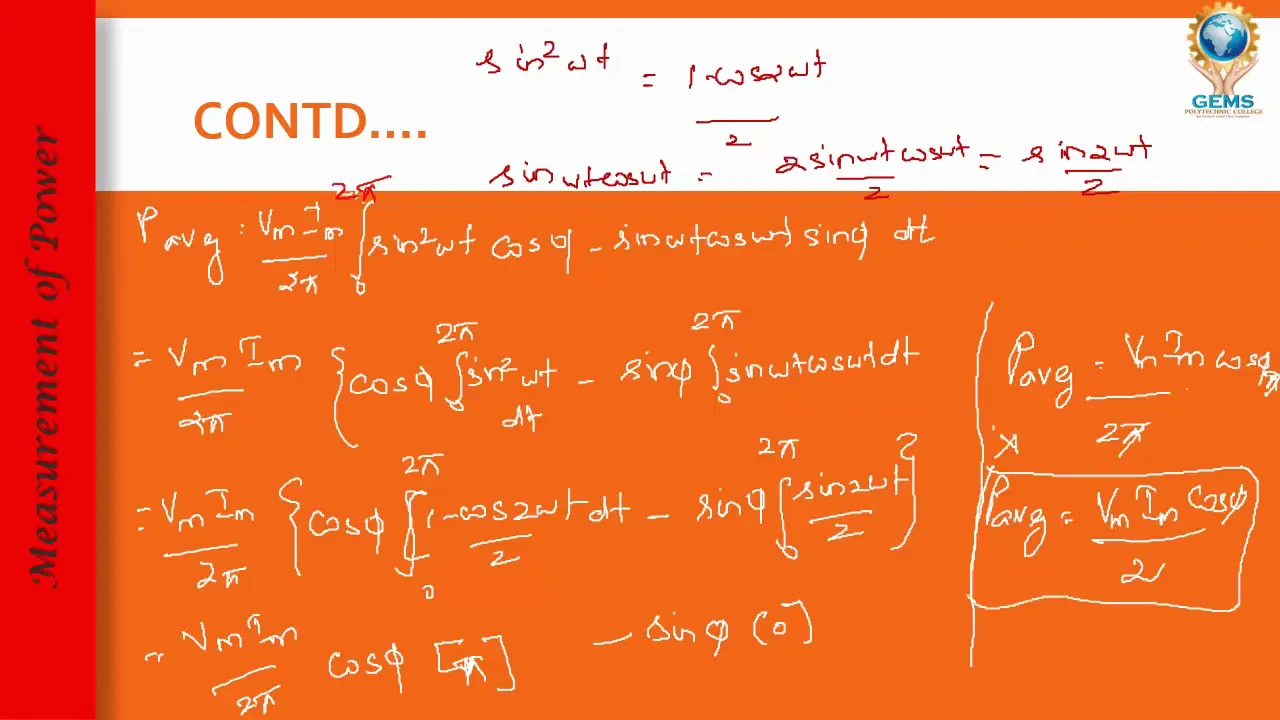 Measurement of Power
GEMS
POLYTECHNIC COLLEGE
CONTD....
sin²ωt = 1-cos2ωt / 2
sinωtcosωt = 2sinωtcosωt / 2 = sin2ωt / 2
Pavg = VmIm / 2π ∫₀^2π sin²ωt cosφ - sinωtcosωt sinφ dt
= VmIm / 2π { cosφ ∫₀^2π sin²ωt dt - sinφ ∫₀^2π sinωtcosωt dt
= VmIm / 2π { cosφ ∫₀^2π 1-cos2ωt / 2 dt - sinφ ∫₀^2π sin2ωt / 2 }
= VmIm / 2π cosφ [π] - sinφ [0]
Pavg = VmIm cosφ π / 2π
Pavg = VmIm cosφ / 2